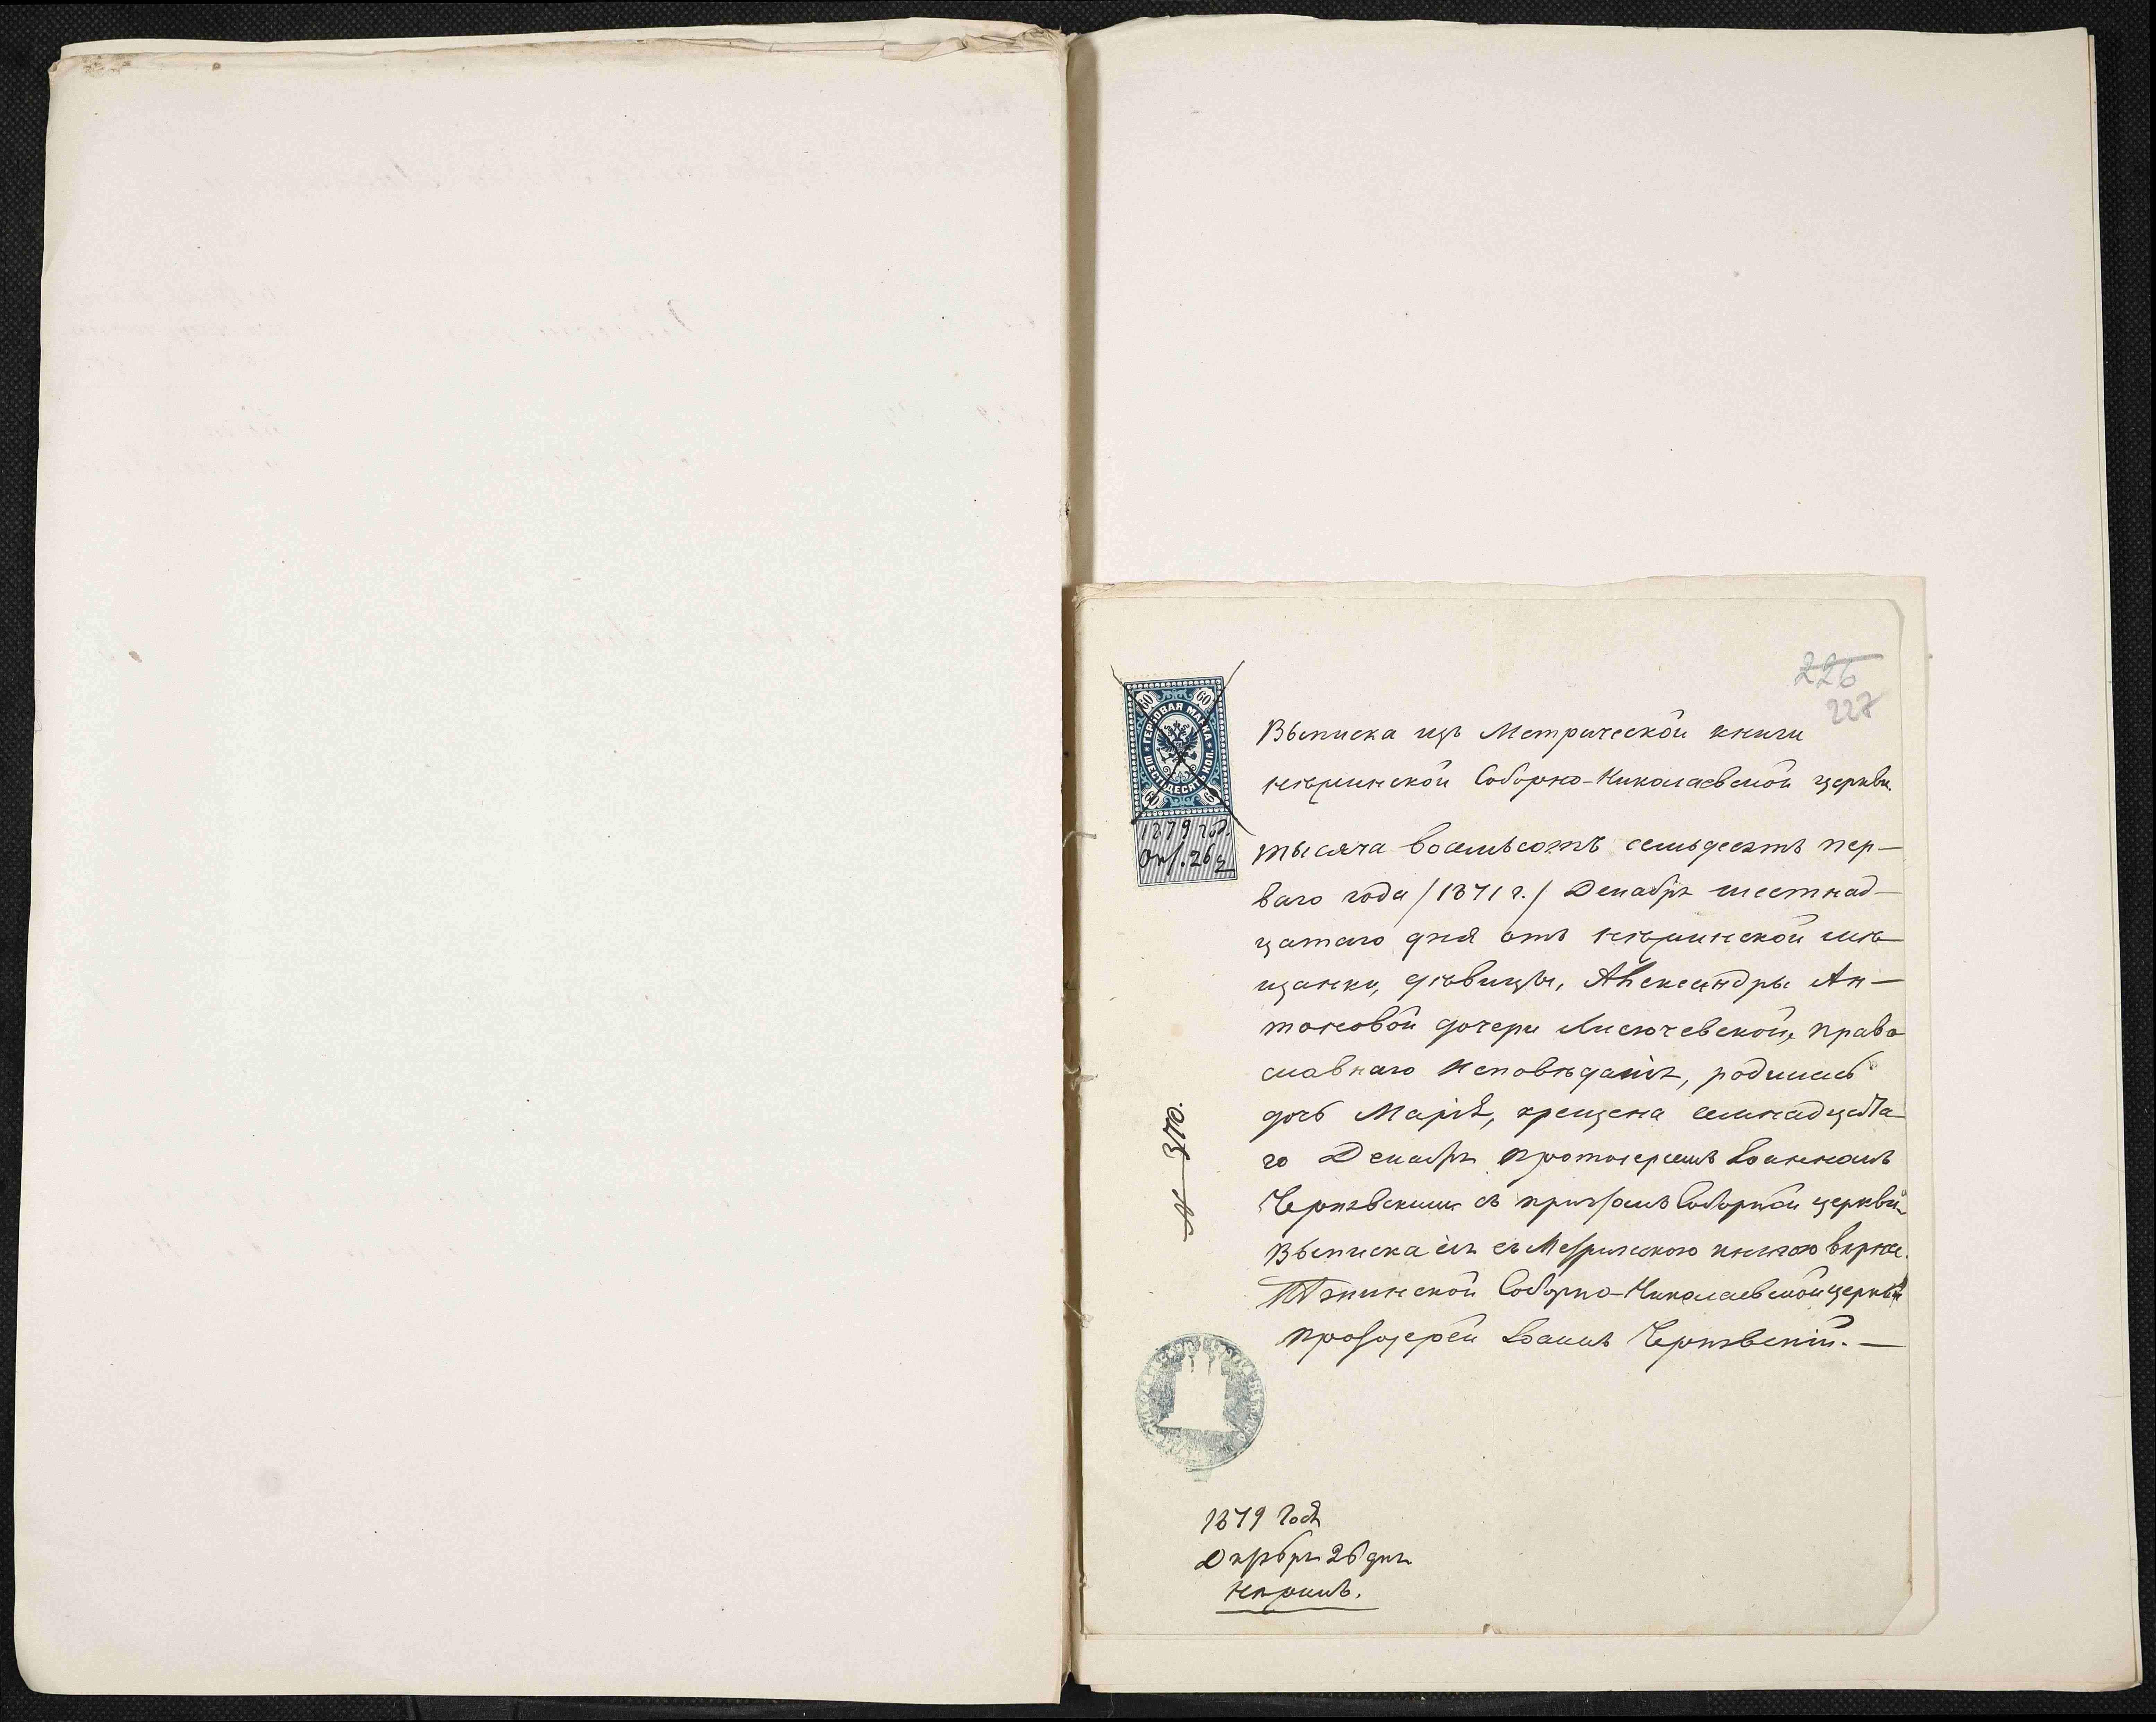 226
227
60 60
ГЕРБОВАЯ МАРКА
ШЕСТЬДЕСЯТЪ КОП.
60 6
1879 год.
Окт. 26 д
Выписка изъ Метрической книги
Нѣжинской Соборно-Николаевской церкви.
тысяча восемьсотъ семьдесятъ пер-
ваго года /1871 г./ Декабря шестнад-
цатаго дня отъ нѣжинской мѣ-
щанки, дѣвицы, Александры Ан-
тоновой дочери православнаго
славнаго исповѣданія, родилась
дочь Марія, крещена семнадцата-
го Декабря протоіереемъ Іоанномъ
съ причтомъ Соборной церкви.
Выписка сія съ Метрическою книгою вѣрна.
Нѣжинской Соборно-Николаевской церкви
протоіерей Іоаннъ
№ 370.
1879 года
Октября 26 дня
Нѣжинъ.